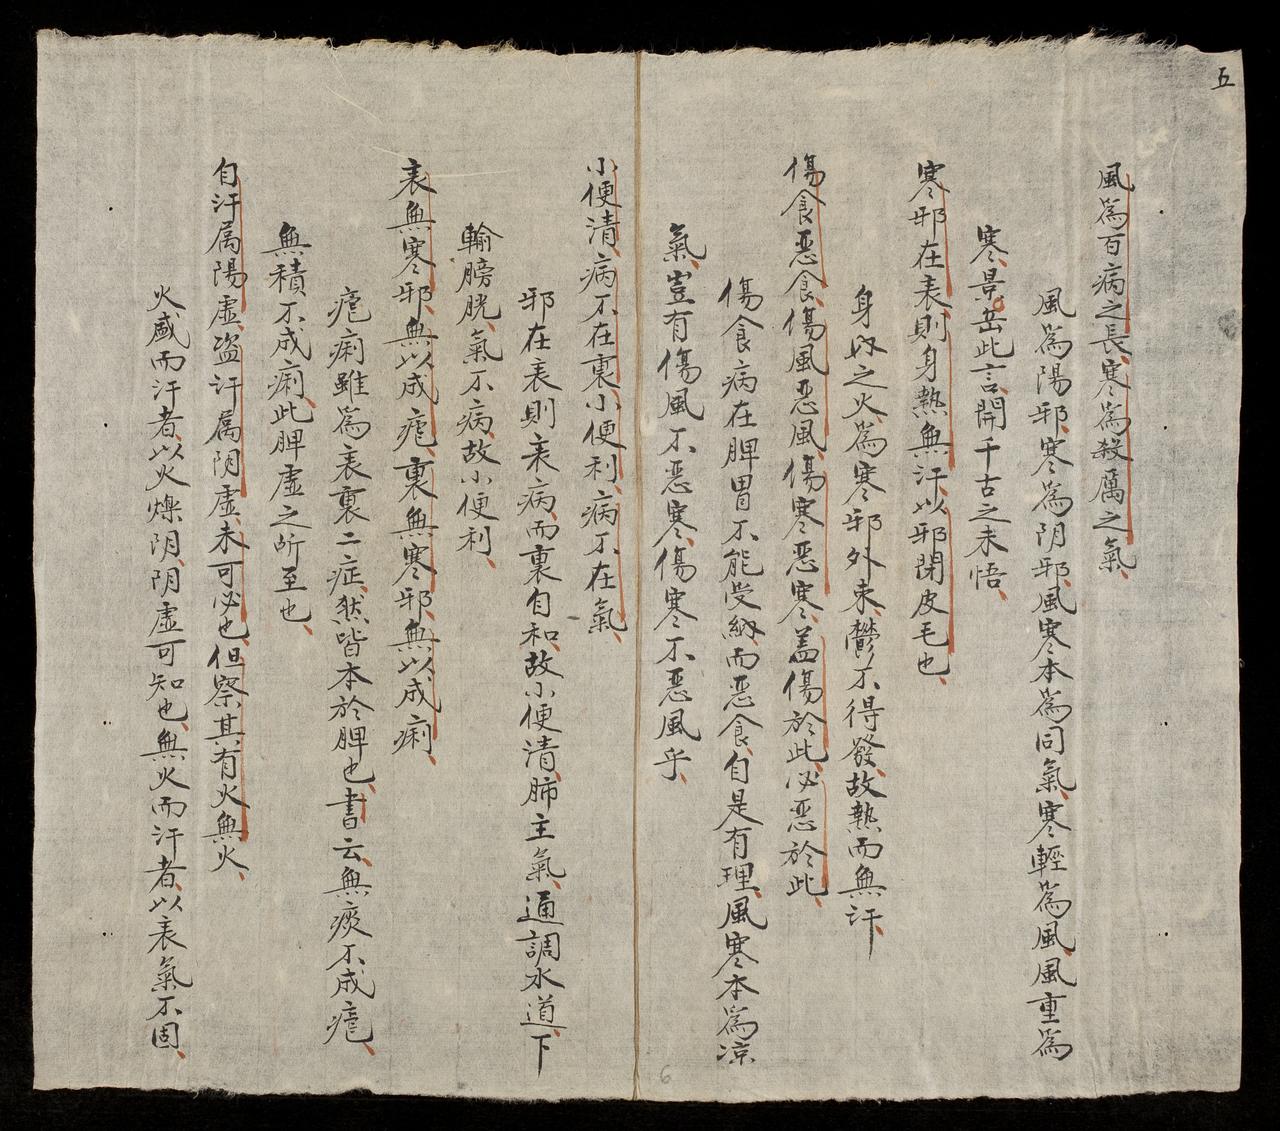 五
風為百病之長、寒為殺厲之氣、
風為陽邪、寒為阴邪、風寒本為同氣、寒輕為風、風重為
寒、景岳此言、開千古之未悟、
寒邪在表、則身熱無汗、以邪閉皮毛也、
身好之火、為寒邪外束、鬱不得發、故熱而無汗、
傷食惡食、傷風惡風、傷寒惡寒、盖傷於此、必惡於此、
傷食病在脾胃、不能受納、而惡食、自是有理、風寒本為凉
氣、豈有傷風不惡寒、傷寒不惡風乎、
小便清、病不在裏、小便利、病不在氣、
邪在表、則表病、而裏自和、故小便清、肺主氣、通調水道、下
輸膀胱、氣不病、故小便利、
表無寒邪、無以成瘧、裏無寒邪、無以成痢、
瘧痢雖為表裏二症、然皆本於脾也、書云、無痰不成瘧、
無積不成痢、此脾虛之所至也、
自汗属陽虛、盗汗属阴虛、未可必也、但察其有火無火、
火盛而汗者、以火爍阴、阴虛可知也、無火而汗者、以表氣不固、
6